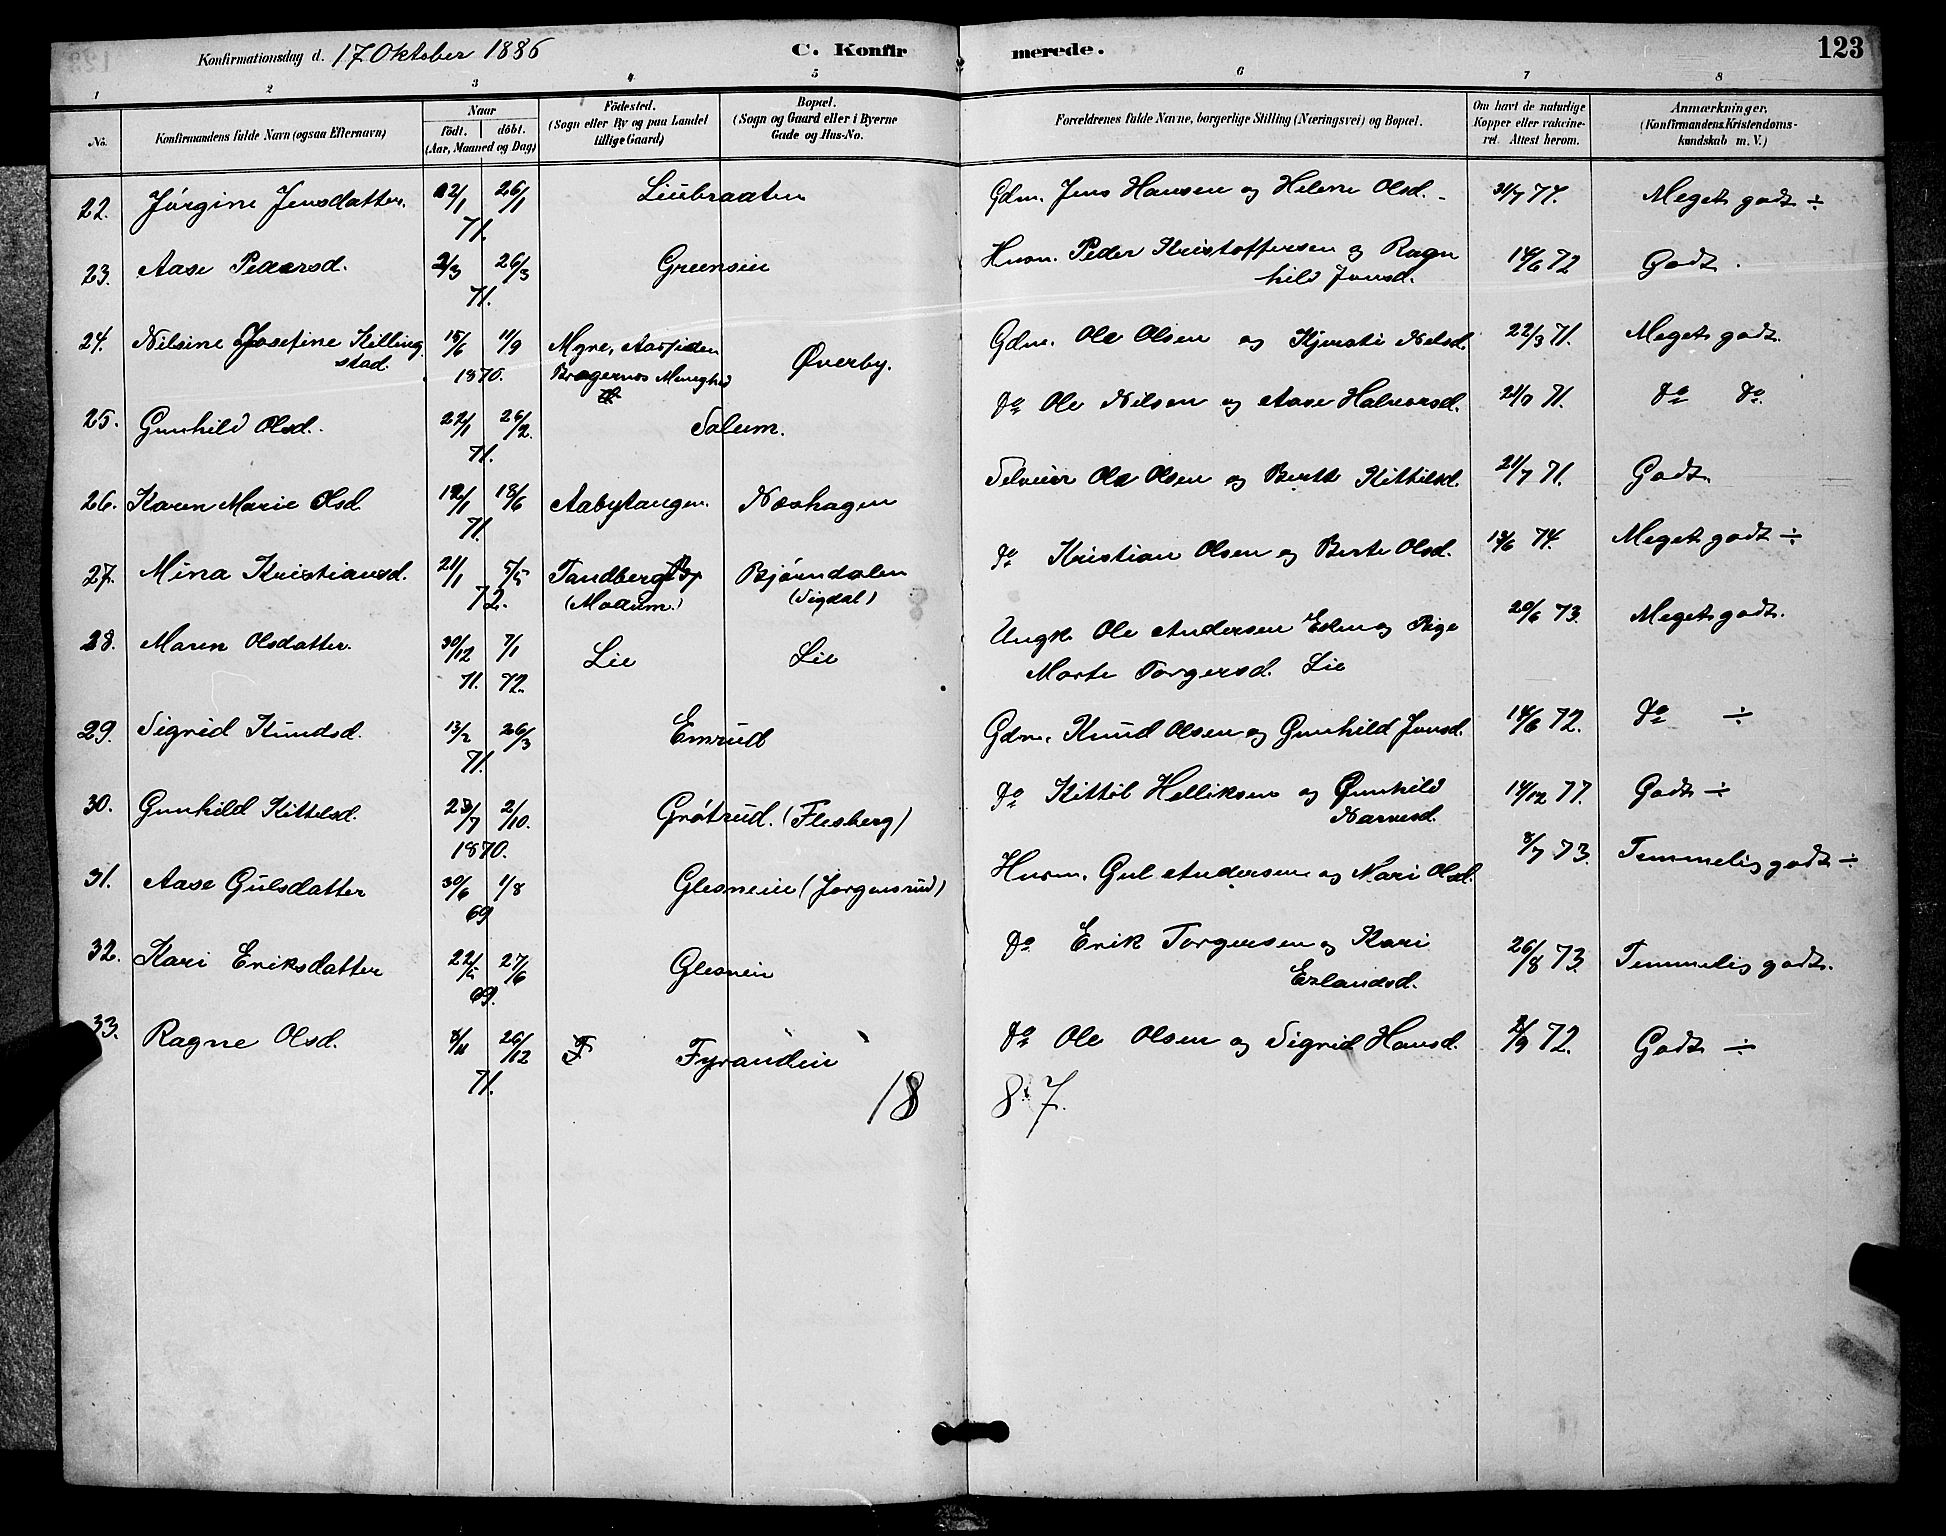 Konfirmationsdag d. 17 Oktober 1886 C. Konfirmerede. 123
1 2 3 4 5 6 7 8
No. Konfirmandens fulde Navn (ogsaa Efternavn) Naar födt. döbt. (Aar, Maaned og Dag) Födested. (Sogn eller By og paa Landet tillige Gaard) Bopæl. (Sogn og Gaard eller i Byerne Gade og Hus-No. Forældrenes fulde Navne, borgerlige Stilling (Næringsvei) og Bopæl. Om havt de naturlige Kopper eller vakcineret. Attest herom. Anmærkninger. (Konfirmandens Kristendomskundskab m. V.)
22. Jørgine Jensdatter. 12/1 26/1 71. Liubraaten Gdm. Jens Hansen og Helene Olsd. 31/7 74. Meget godt ÷
23. Aase Pedersd. 2/3 26/3 71. Greenseie Husm. Peder Kristoffersen og Ragnhild Jonsd. 14/6 72 Godt.
24. Nilsine Josefine Killingstad. 15/6 11/9 1870. Myre, Aassiden Bragernes Menighed Øverby. Gdm. Ole Olsen og Kjersti Nelsd. 22/3 71. Meget godt.
25. Gunhild Olsd. 22/1 26/2. 71. Solum. do Ole Nilsen og Aase Halvorsd. 21/7 71. do do
26. Karen Marie Olsd. 12/1 18/6 71. Aabytangen. Næshagen Selveier Ole Olsen og Berthe Kittilsd. 21/7 71. Godt.
27. Mina Kristiansd. 21/1 5/5 72. Tandberg (Modum.) Bjørndalen (Sigdal) do Kristian Olsen og Berte Olsd. 14/6 74. Meget godt ÷
28. Maren Olsdatter. 30/12 71. 7/1 72. Lie Lie Ungk. Ole Andersen og Pige Marte Torgersd. Lie 20/6 73. Meget godt.
29. Sigrid Knudsd. 13/2 26/3 71. Emrud Gdm. Knud Olsen og Gunhild Jonsd. 14/6 72. do ÷
30. Gunhild Kittelsd. 23/7 2/10. 1870. Grøtrud. (Flesberg) do Kittil Helliksen og Gunhild Narvesd. 14/12 77. Godt ÷
31. Aase Gulsdatter 30/6 1/8 69 Glesneeie (Jorgensrud) Husm. Gul Andersen og Kari Olsd. 8/7 73. Temmelig godt ÷
32. Kari Eriksdatter 22/5 27/6 69. Glesneeie do Erik Torgersen og Kari Erlandsd. 26/8 73. Temmelig godt.
33. Ragne Olsd. 8/11 26/12 71. Fyrandeie do Ole Olsen og Sigrid Hansd. 2/9 72. Godt ÷
18 87.